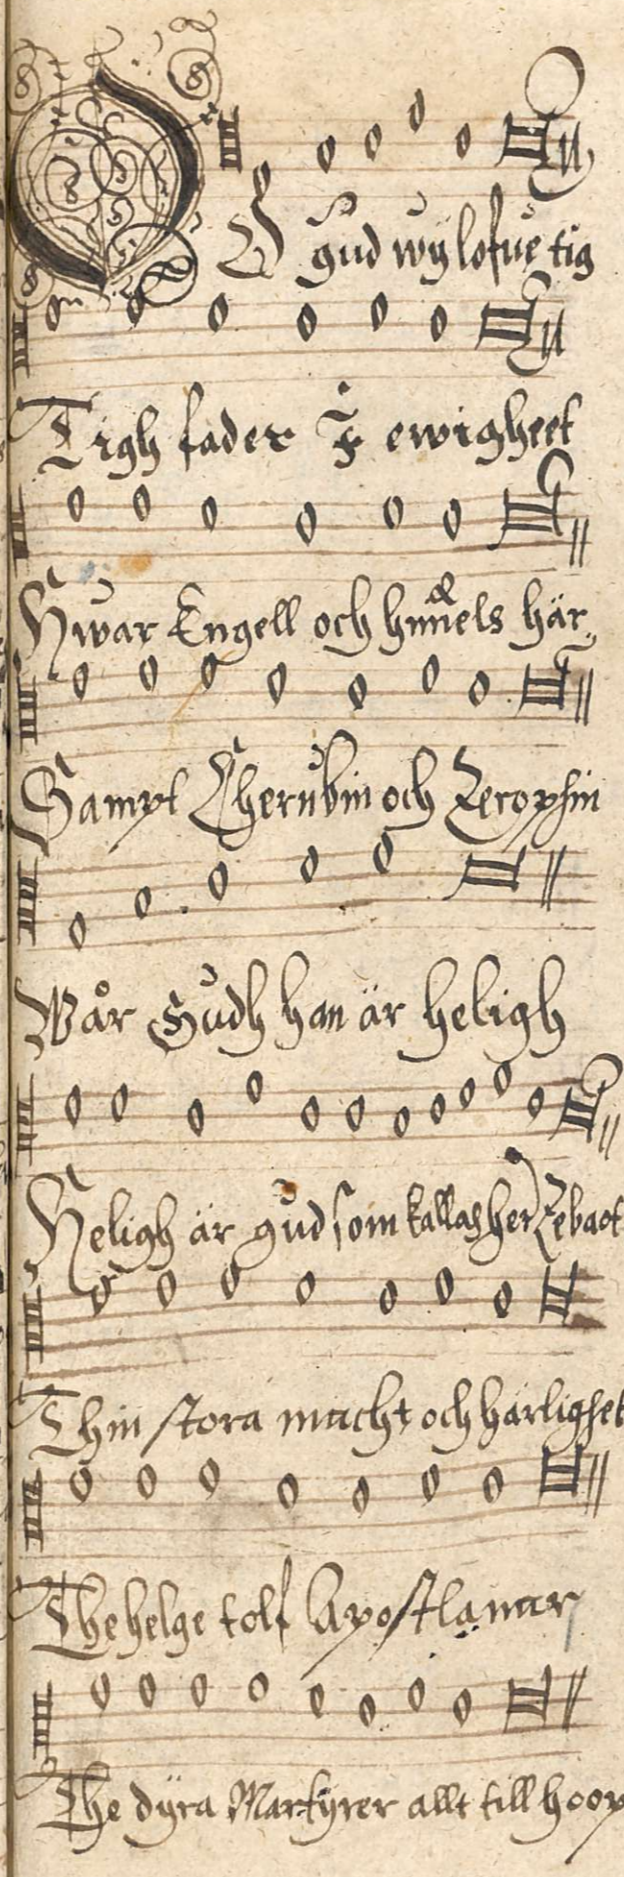 O gud wij lofue tig
Tigh fader I ewigheet
Hwar Engell och himels här
Sampt Cherubin och Zerophin
Wår Gudh han är heligh
Heligh är gud som kallas her Zebaot
Thin stora macht och harlighet
The helge tolf Apostlanar
The dÿra Martÿrer allt till hoop